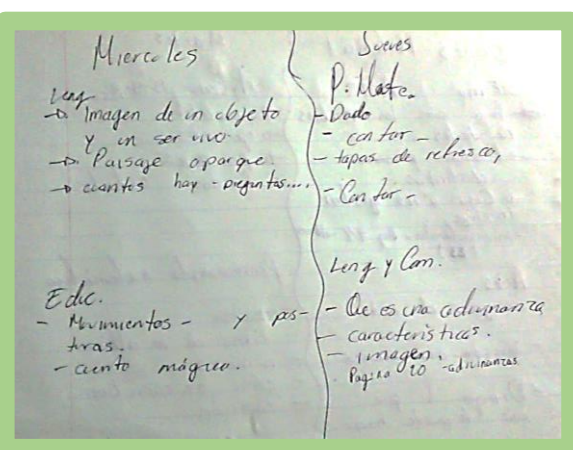 Miercoles
Leng
→ Imagen de un objeto
y un ser vivo.
→ Paisaje o parque.
→ cuantos hay - preguntas....
Educ.
- Movimientos - y pos-
turas.
- cuento mágico.
Jueves
P. Mate.
- Dado
- contar -
- tapas de refresco,
- Contar -
Leng y Com.
- Qe es una adivinanza
- caracteristicas.
- imagen.
. Pagina 20 - adivinanzas